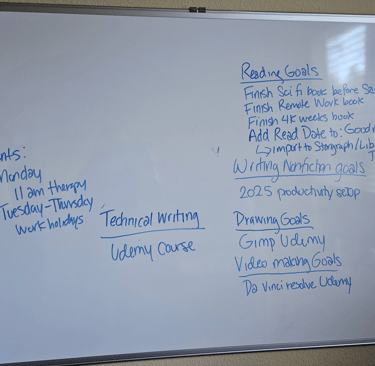 Monday
11 am therapy
Tuesday-Thursday
work holidays
Technical Writing
Udemy Course
Reading Goals
Finish Sci fi book before
Finish Remote Work book
Finish 4K weeks book
Add Read Date to:
↳ import to Storygraph/
Writing Nonfiction goals
2025 productivity setup
Drawing Goals
Gimp Udemy
Video making Goals
Da vinci resolve Udemy